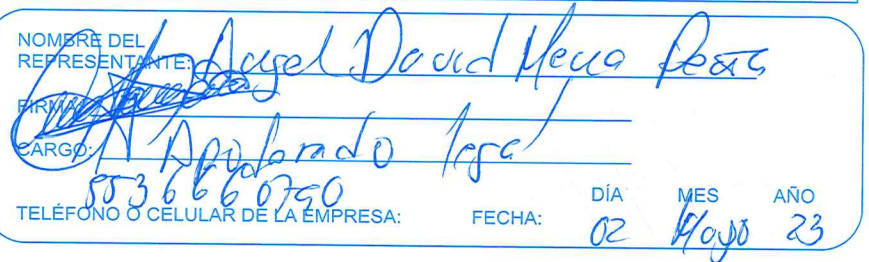 NOMBRE DEL
REPRESENTANTE: Angel David Mena Peña
FIRMA:
CARGO: Apoderado legal
5536660790
TELÉFONO O CELULAR DE LA EMPRESA: FECHA: DÍA MES AÑO
02 Mayo 23